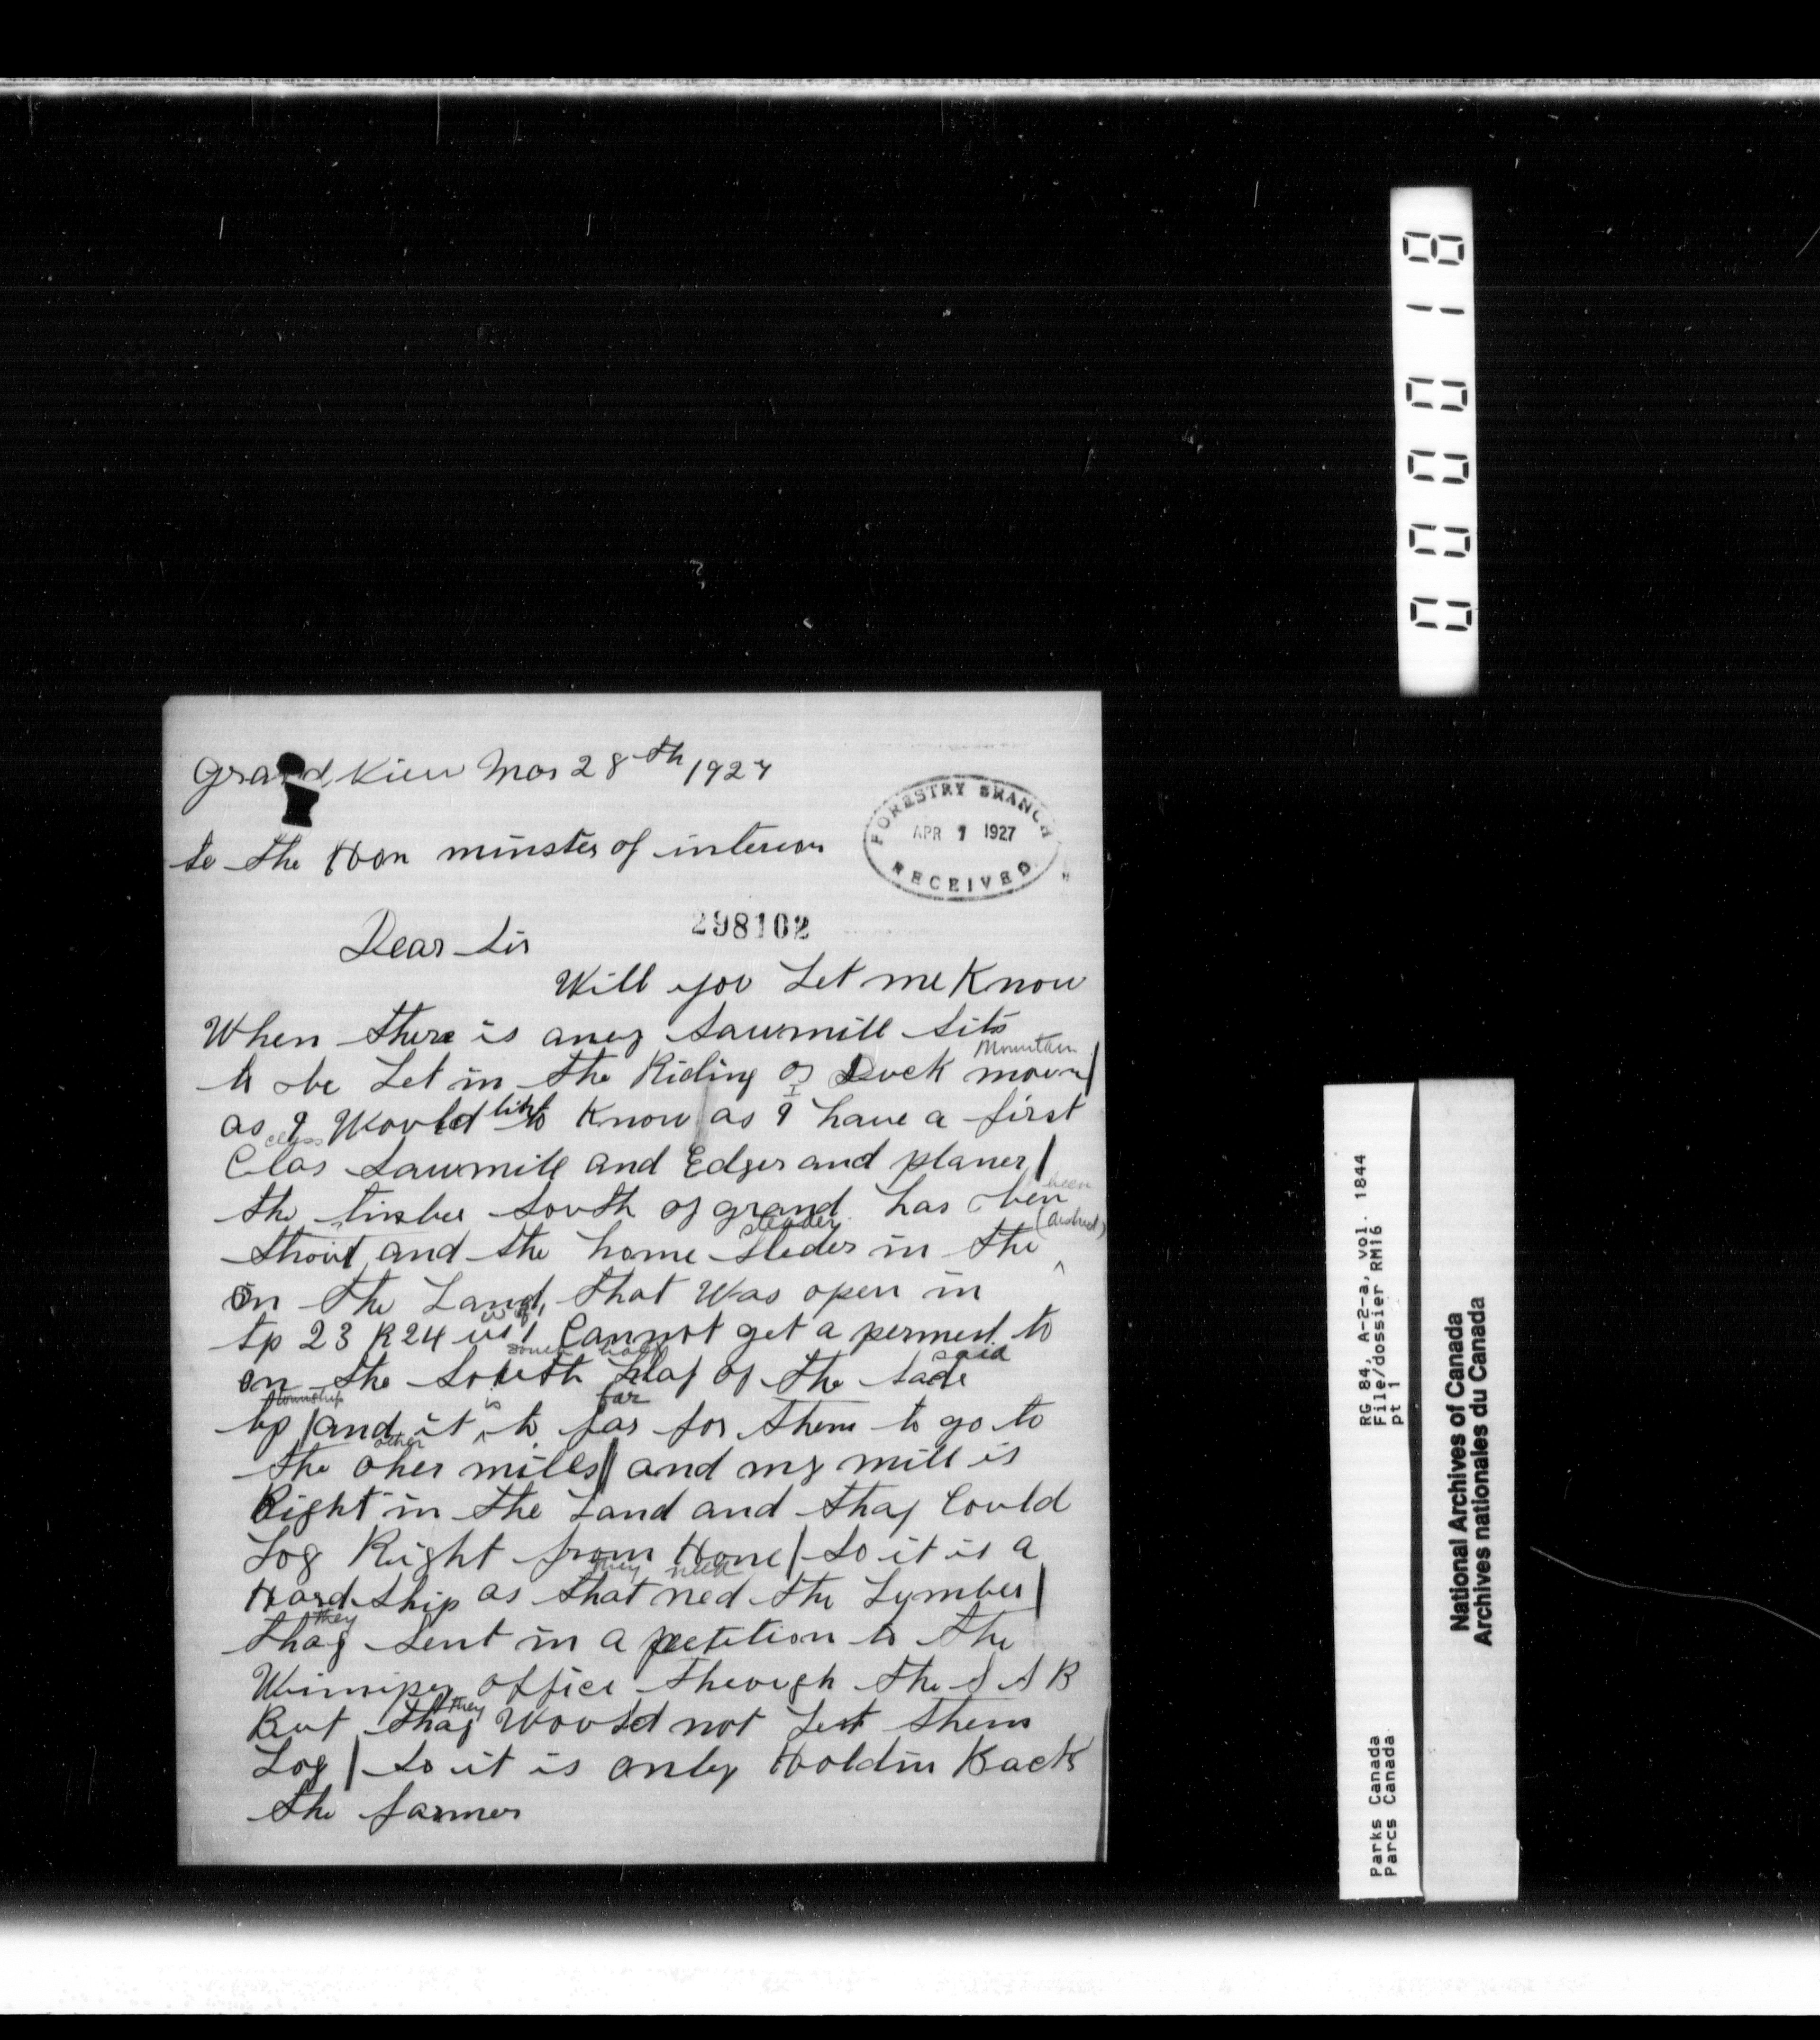 Grand View Mar 28th 1927
to the Hon minster of interior
FORESTRY BRANCH
APR 1 1927
RECEIVED
298102
Dear Sir
Will you Let me Know
When there is aney Sawmill Sits
Mountain
to be Let in the Riding or Duck moun
I
as I Would like to Know as I have a first
class
Clas Sawmill and Edger and planer
been
the timber South of grand has ben
steader
and the home Steder in the
on the Land that Was open in
W of 1
tp 23 R24 Cannot get a permest to
south half said
on the South Half of the Sade
township is far
tp and it to far for them to go to
other
the oher milles and my mill is
Right in the Land and thay Could
Log Right from Home So it is a
they need
Hard Ship as that ned the Lymber
they
thay Sent in a petetion to the
Winnipeg office through the S S B
they
But thay Would not Let them
Log So it is onley Holdin Back
the farmer
00001 8
RG 84, A-2-a, vol. 1844
File/dossier RM16
pt 1
Parks Canada
Parcs Canada
National Archives of Canada
Archives nationales du Canada